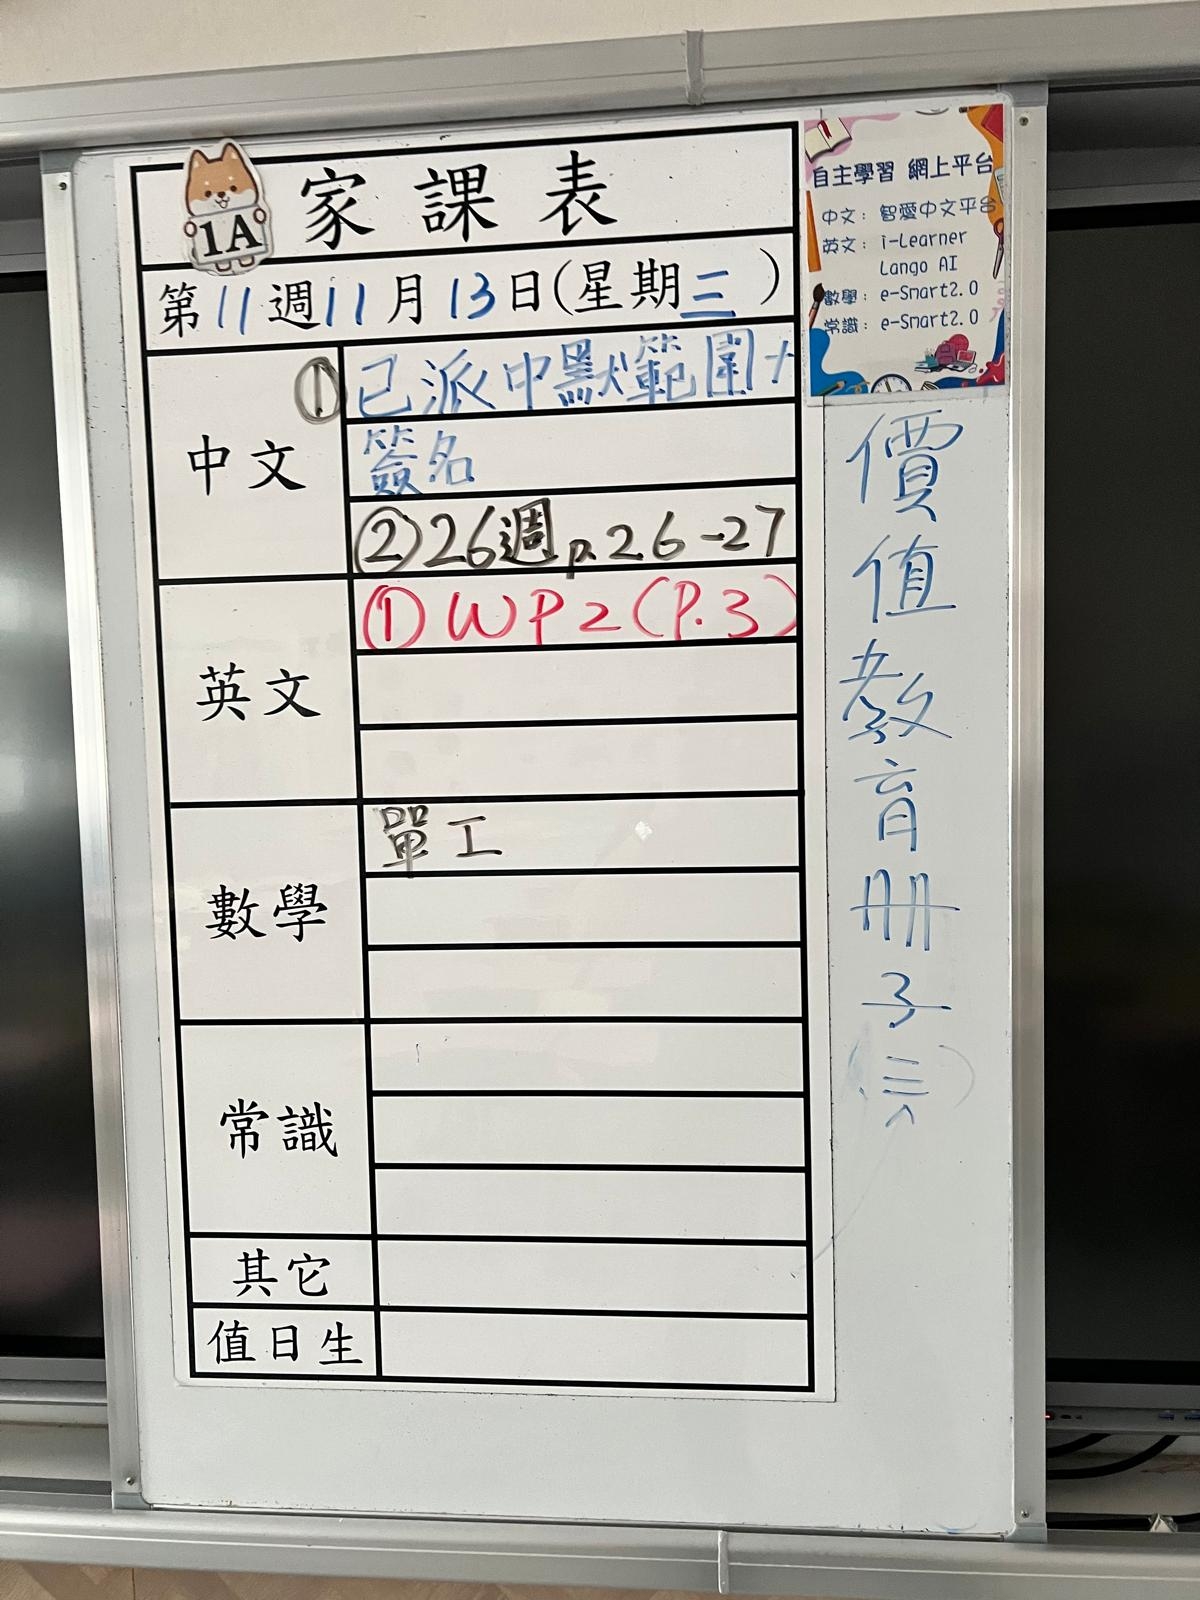 1A
家課表
第11週11月13日(星期三)
中文
①已派中默範圍+
簽名
②26週p.26-27
英文
①WP2(P.3)
數學
單工
常識
其它
值日生
自主學習 網上平台
中文：智愛中文平台
英文：i-Learner
Lango AI
數學：e-Smart2.0
常識：e-Smart2.0
價值教育冊子